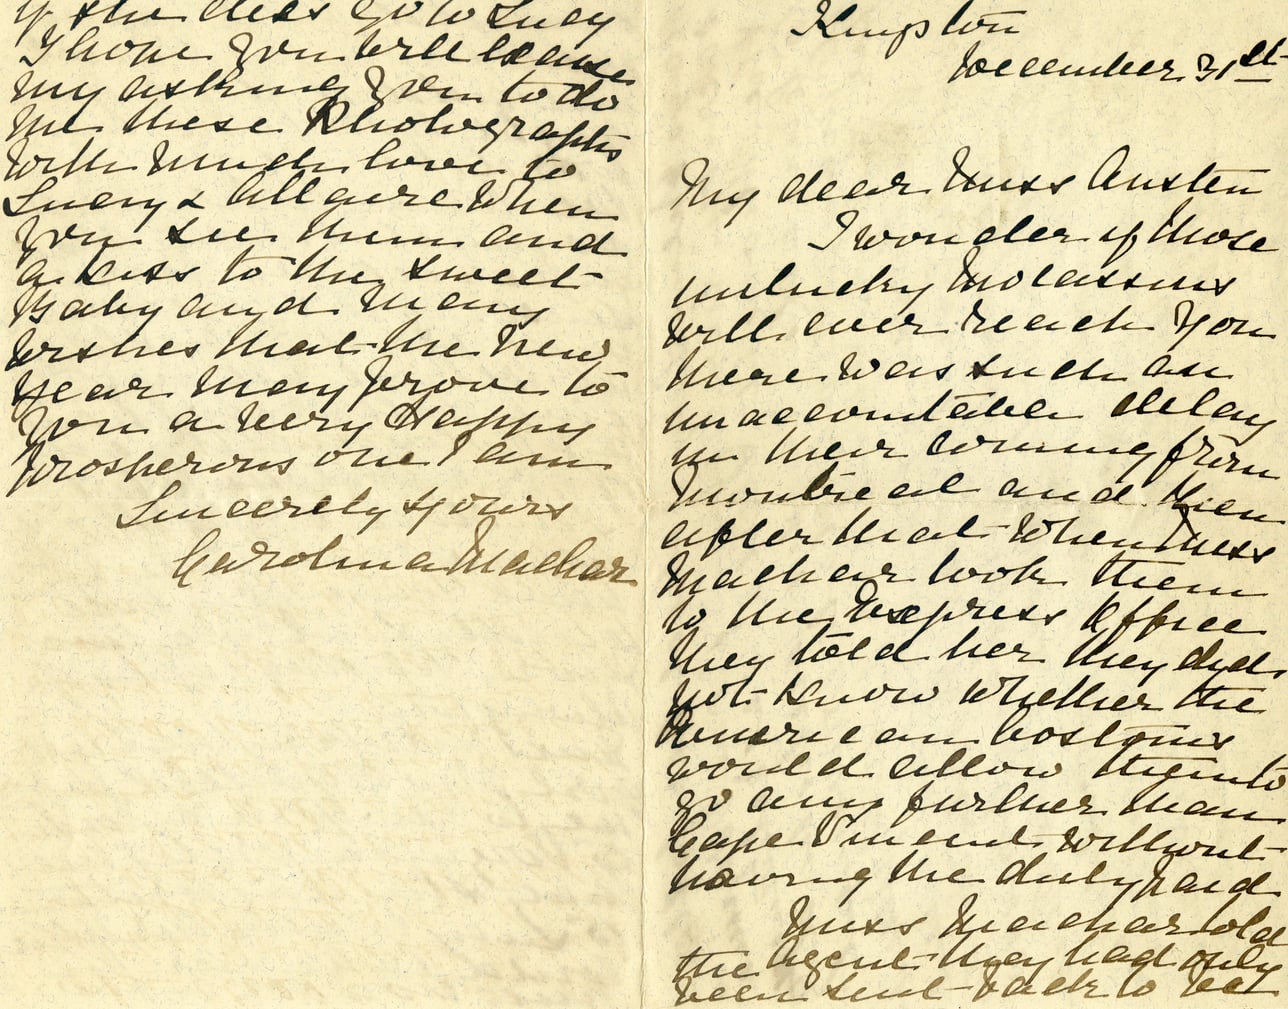 Kingston
December 31st
My dear Miss Austen
I wonder if those
unlucky Mocassins
will ever reach you
there was such an
unaccountable delay
in their coming from
Montreal and then
after that when Miss
Machar took them
to the Express Office
they told her they did
not know whether the
American Costoms
would allow them to
go any further than
Cape Vincent without
having the duty paid
Miss Machar told
the Agent they had only
been sent back to be
if she does go to Lucy
I hope you will Excuse
my asking you to do
me these Photographs
with much love to
Lucy & when
you see them and
a kiss to the sweet
Baby and many
wishes that the New
year may prove to
you a very Happy
prosperous one I am
Sincerely Yours
Carolina Machar